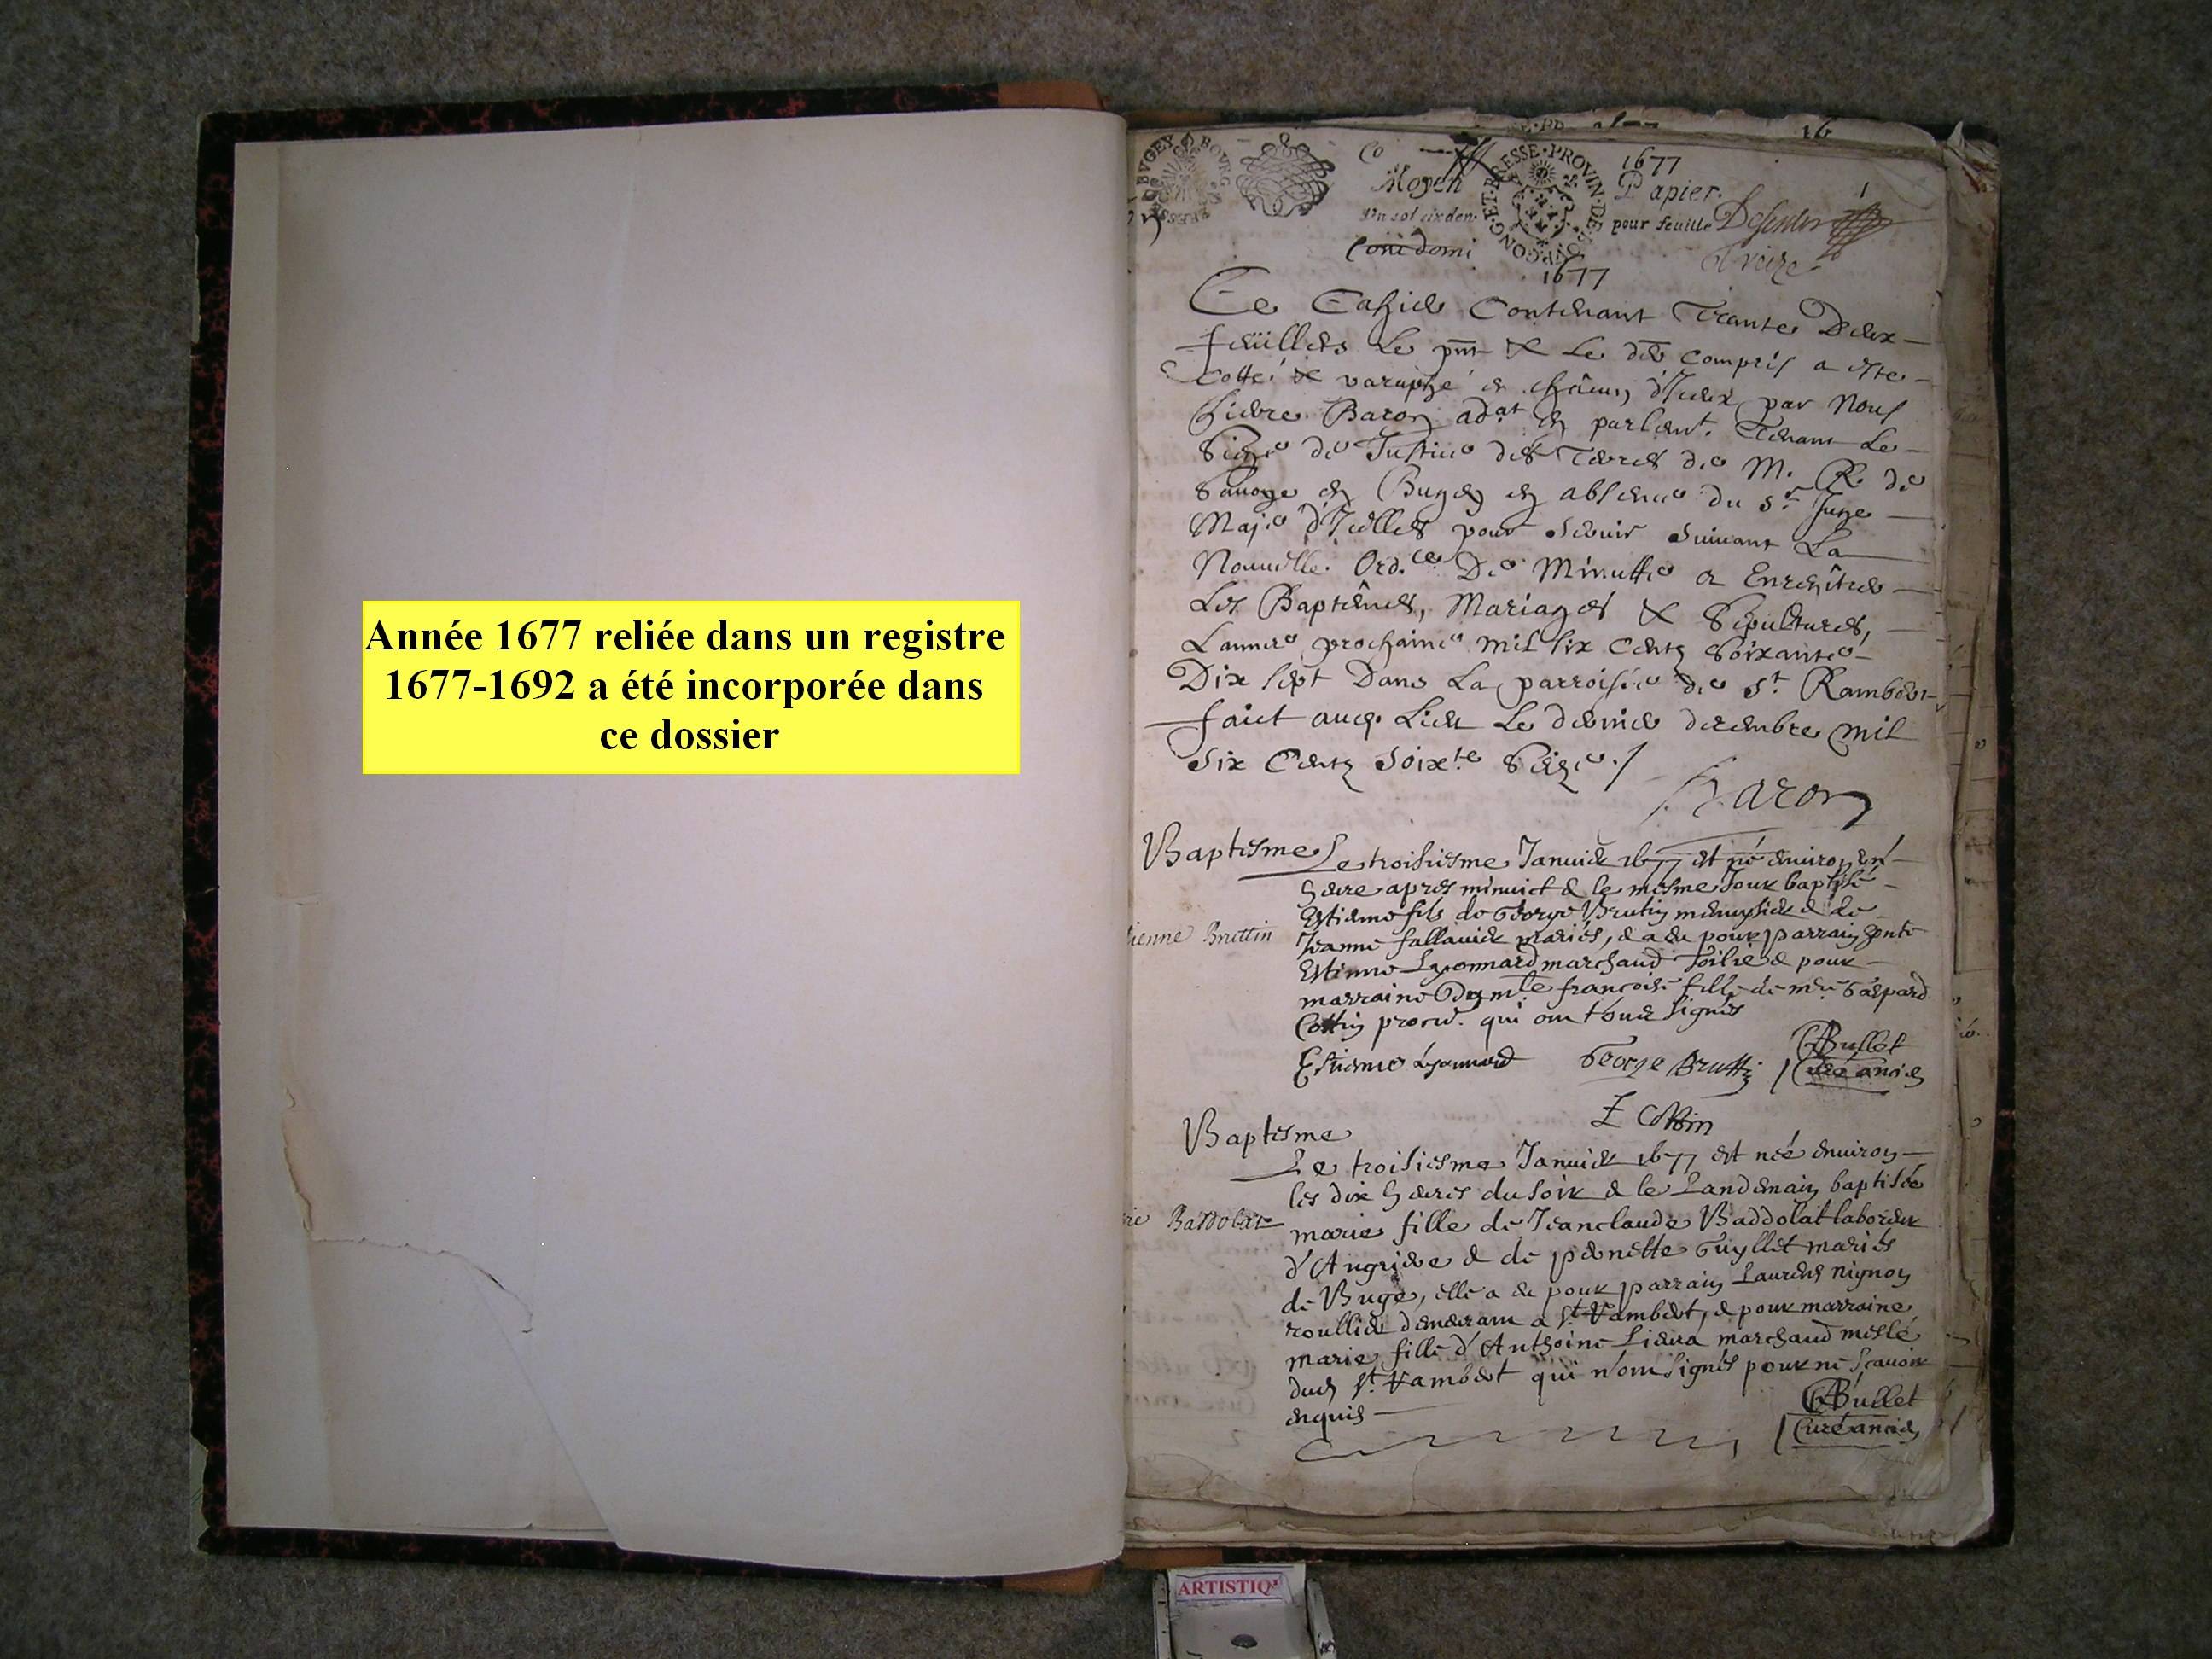 Année 1677 reliée dans un registre
1677-1692 a été incorporée dans
ce dossier
16
1677
Moyen Papier. 1
Un sol six den. pour feuille
BRESSE BUGEY BOURG
BRESSE PROVIN DE BOURGONG ET
1677
Ce Cahier Contenant Trante Deux
feuillets Le pnt & Le der compris a este
Cotté & paraphé en chacun d'Iceux par Nous
Pierre Baron adat en parlemt. Tenant Le
Siege de Justice des Terres de M. R. de
Sauoye en Bugey en absence du Sr. Juge
Maje d'Icelles pour seruir suiuant La
Nouuelle Ord.ce De Minutte a Enregistrer
Les Baptêmes, Mariages & Sepultures,
L'annee prochaine mil six Cents Soixante
Dix sept Dans La parroisse de St. Rambert
faict aud. Lieu Le dernier decembre mil
six Cents Soixte Seize ./
Baron
Baptesme Le troisiesme Januier 1677 est né enuiron un
heure apres minuict & le mesme Jour baptisé
Estienne fils de George Brutin menusier & de
ienne Bruttin
Jeanne fallauier mariés, & a eu pour parrain honte
Estienne Lyonnard marchand toilier & pour
marraine Dymle francoise fille de mre Gaspard
Cottin procur. qui ont tous signés
Estienne Lyonnard George Bruttin Bullet
Curé ancien
F Cottin
Baptesme
Le troisiesme Januier 1677 est née enuiron
les dix heures du soir & le Landemain baptisée
rie Baddolat
marie fille de Jeanclaude Baddolat laboreur
d'Angriere & de pernette Guyllet mariés
de Buge, elle a eu pour parrain Laurens nignon
roullier demeurant a St. Rambert, & pour marraine
marie fille d'Anthoine Lieura marchand meslé
dud St. Rambert qui n'ont signés pour ne scauoir
enquis
Bullet
Curé ancien
ARTISTIQ